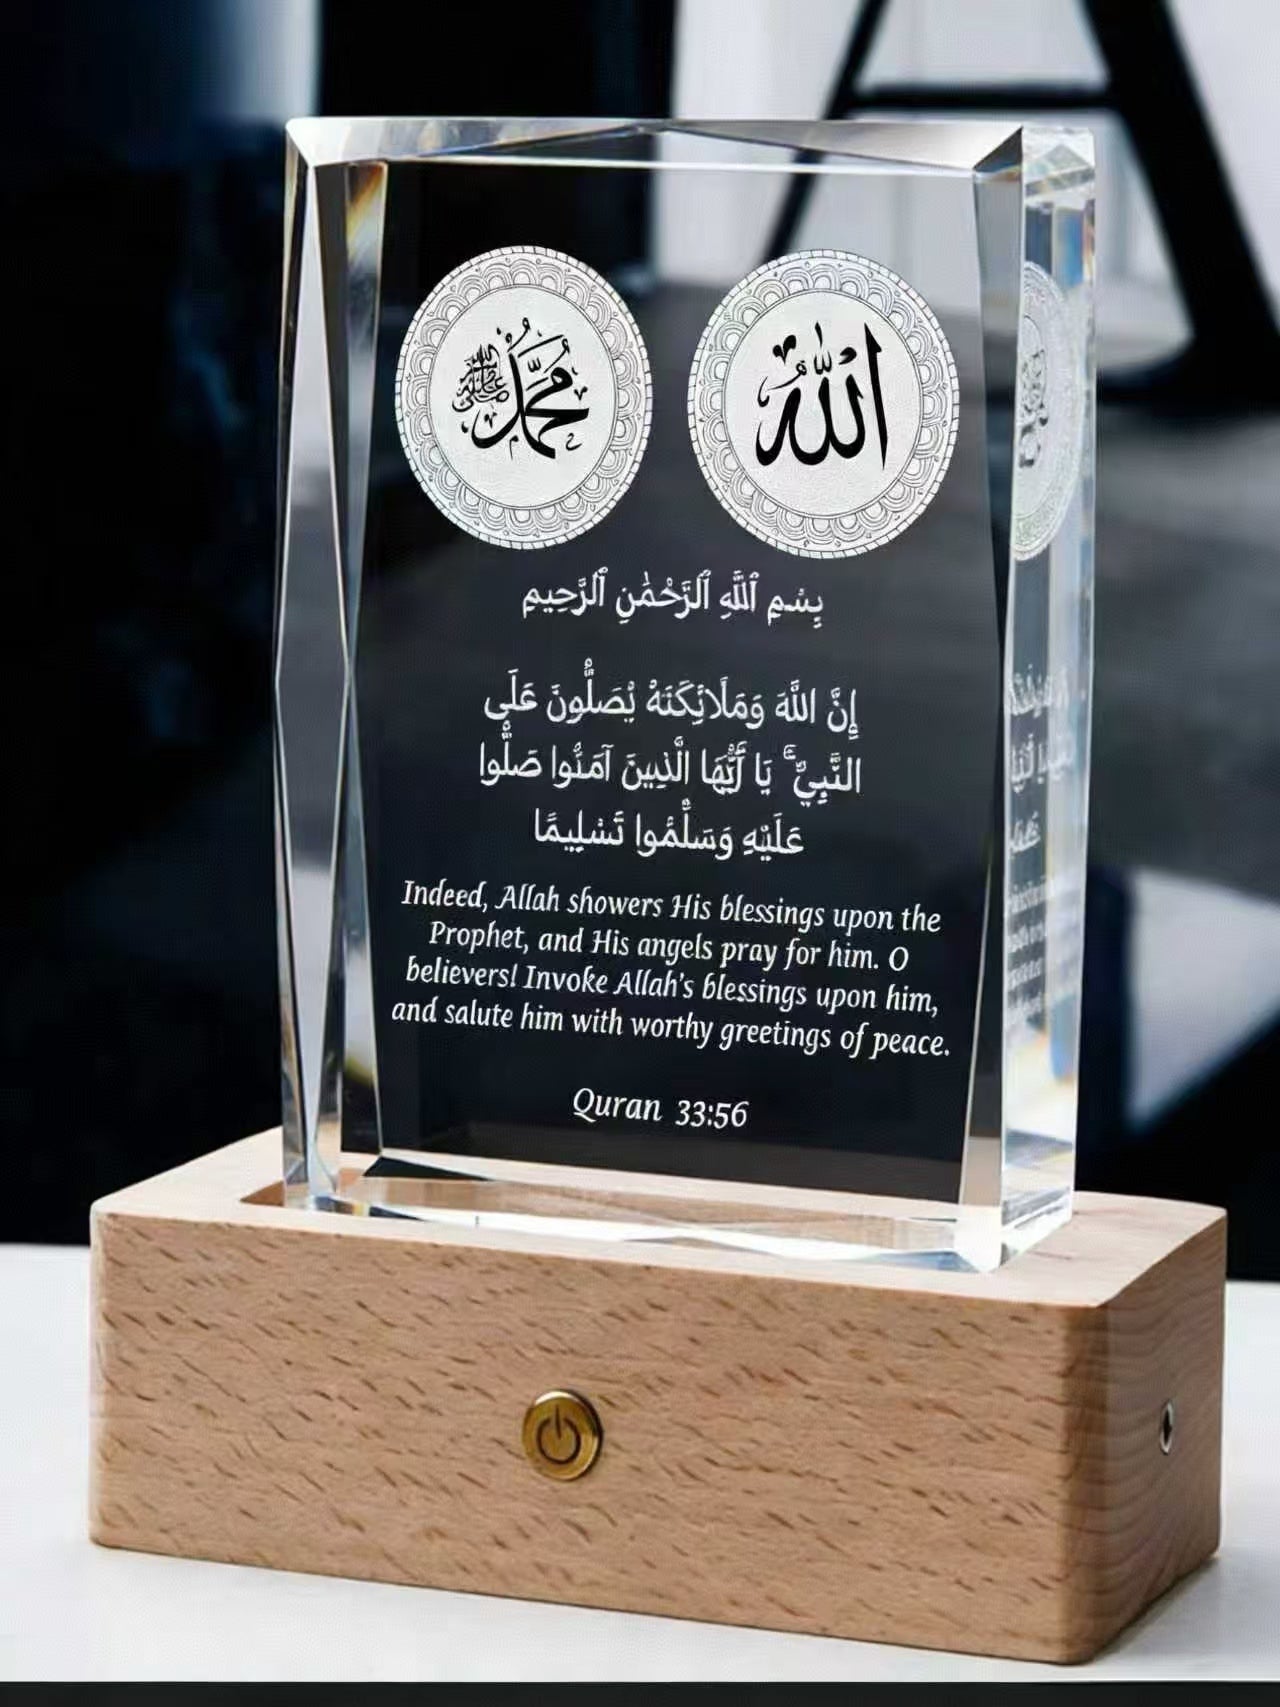 محمد صلى الله عليه وسلم
الله
بِسْمِ ٱللَّهِ ٱلرَّحْمَٰنِ ٱلرَّحِيمِ
إِنَّ اللَّهَ وَمَلَائِكَتَهُ يُصَلُّونَ عَلَى
النَّبِيِّ ۚ يَا أَيُّهَا الَّذِينَ آمَنُوا صَلُّوا
عَلَيْهِ وَسَلِّمُوا تَسْلِيمًا
Indeed, Allah showers His blessings upon the
Prophet, and His angels pray for him. O
believers! Invoke Allah's blessings upon him,
and salute him with worthy greetings of peace.
Quran 33:56